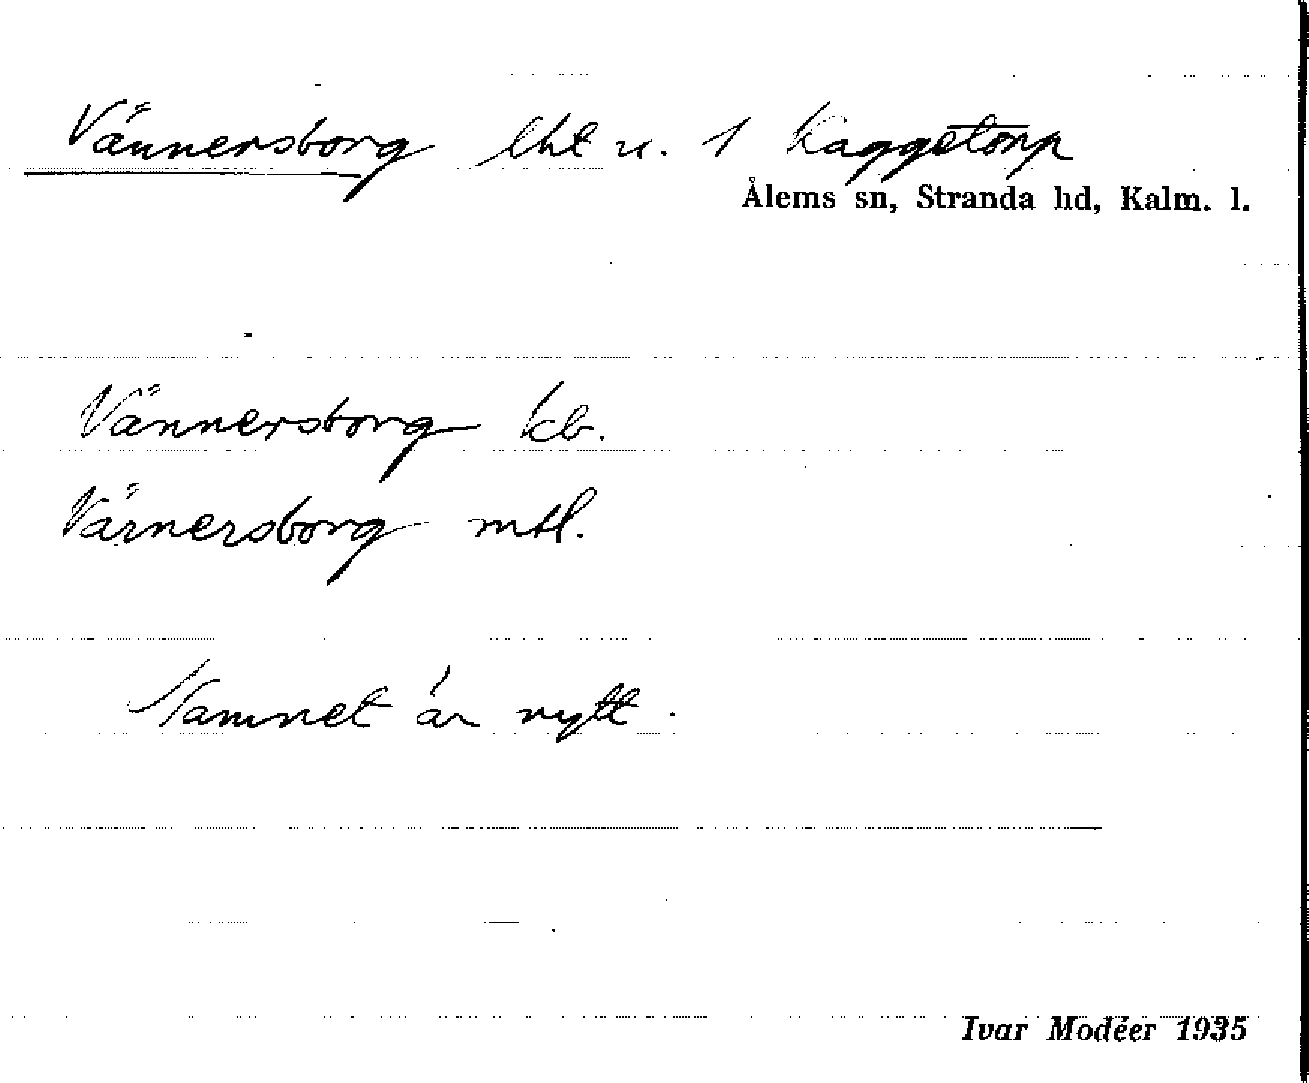 Vännersborg lht u. 1 Kaggetorp
Ålems sn, Stranda hd, Kalm. l.
Vännersborg kb.
Värnersborg mtl.
Namnet är nytt.
Ivar Modéer 1935